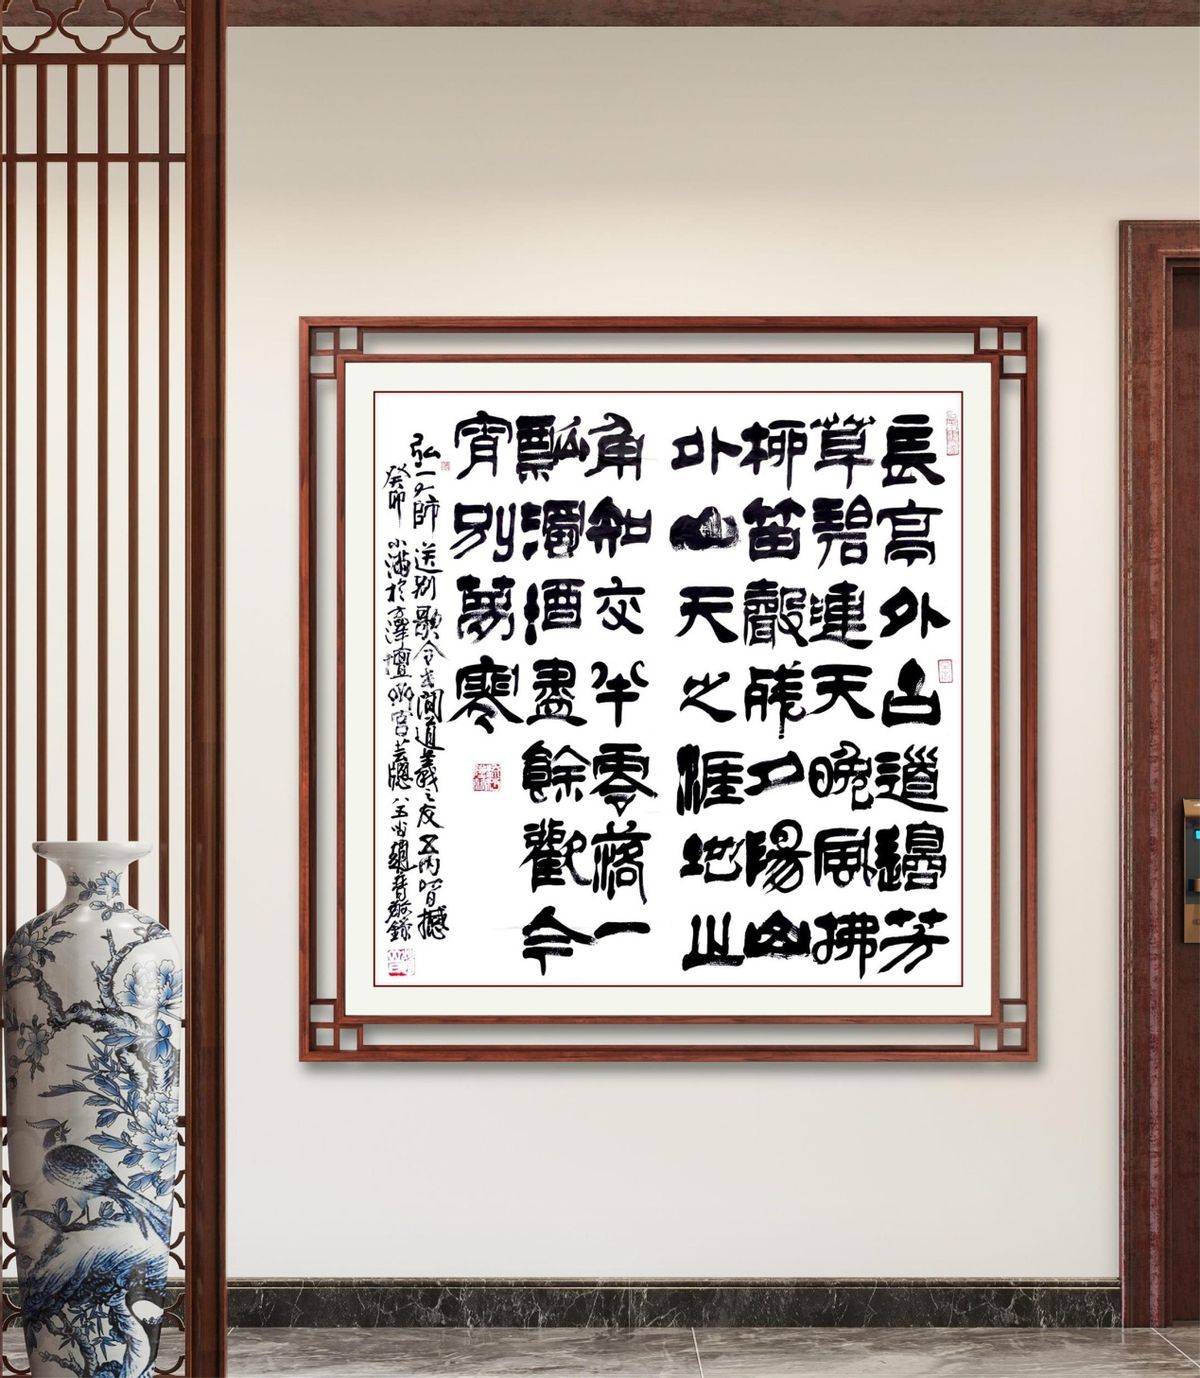 長亭外古道邊芳
草碧連天晚風拂
柳笛聲殘夕陽山
外山天之涯地之
角知交半零落一
瓢濁酒盡餘歡今
宵別夢寒
弘一大師送別歌 間道義之友
癸卯小滿於